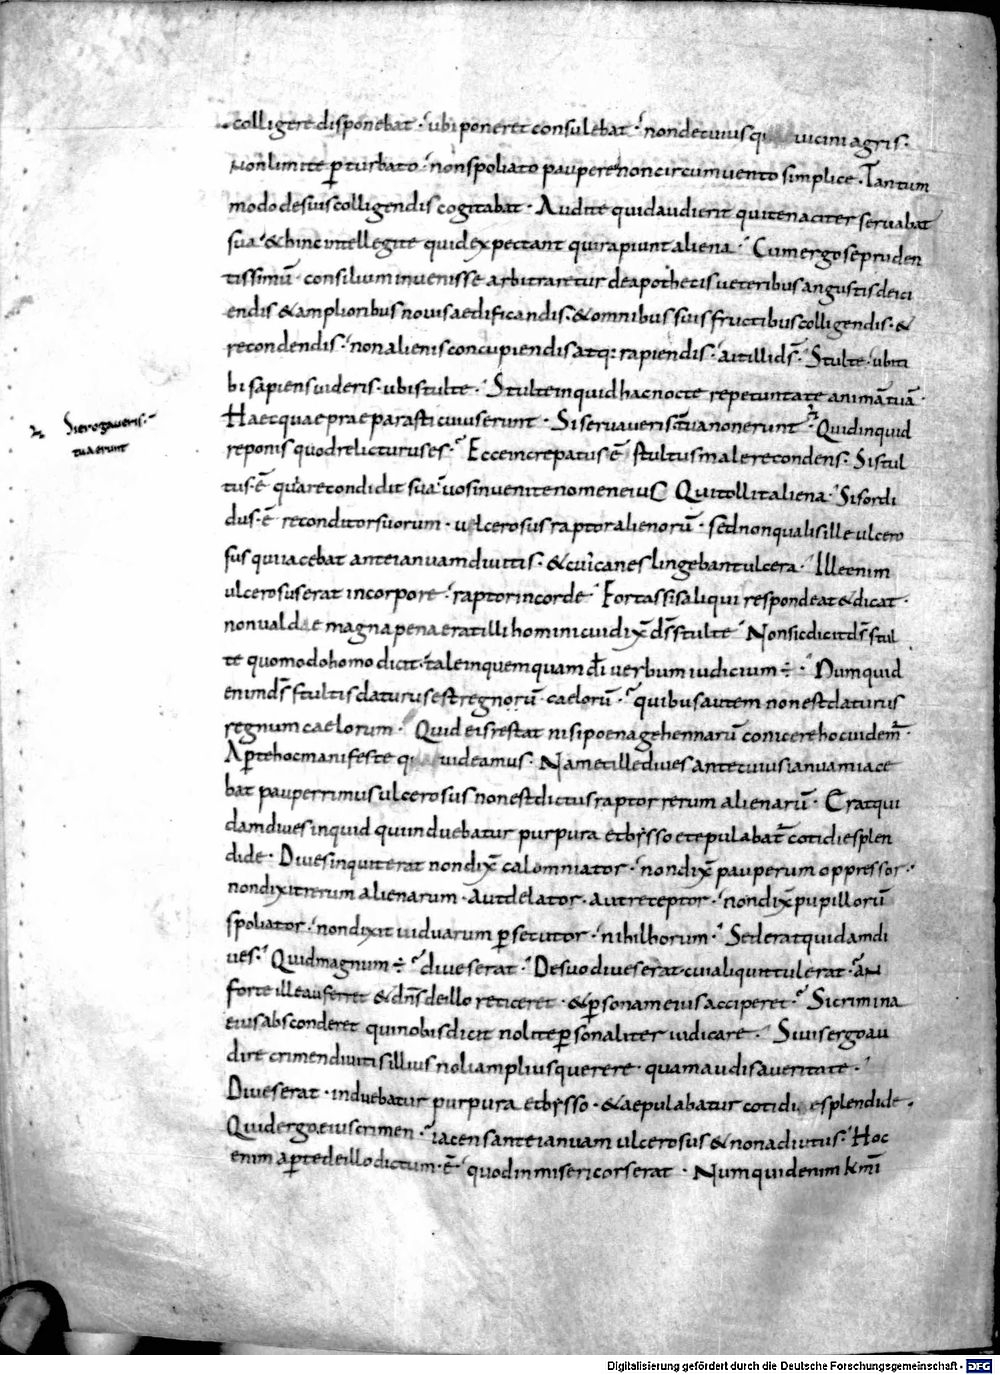 colligere disponebat · ubi poneret consulebat · non de cuiusq vicini agris ·
Non limite p̱turbato · non spoliato paupere non circumvento simplice · Tantum
modo de suis colligendis cogitabat · Audite quid audierit qui tenaciter servabat
sua · & hinc intellegite quid expectant qui rapiunt aliena · Cum ergo se pruden
tissimū · consilium invenisse arbitraretur de apothecis veteribus angustis deici
endis & amplioribus novis aedificandis · & omnibus suis fructibus colligendis · &
recondendis · non alienis concupiendis atq: rapiendis · ait illi ds̄ · Stulte · ubi ti
bi sapiens videris · ubi stulte · Stulte inquid hac nocte repetunt a te animā tuā ·
Haec quae praeparasti cuius erunt · Si servaveris · tua non erunt · Quid inquid
Si erogaveris ·
tua erunt
reponis quod relicturus es · Ecce increpatus ē stultus male recondens · Si stul
tus · ē qui recondidit sua · vos invenite nomen eius Qui tollit aliena · Si sordi
dus · ē reconditor suorum · ulcerosus raptor alienorū · sed non qualis ille ulcero
sus qui iacebat ante ianuam divitis · & cui canes lingebant ulcera · Ille enim
ulcerosus erat in corpore · raptor in corde · Fortassis aliqui respondeat & dicat ·
non valdae magna pena erat illi homini cui dix̄ ds̄ stulte · Non sic dicit ds̄ stul
te quomodo homo dicit · tale in quemquam dī verbum iudicium ÷ · Numquid
enim ds̄ stultis daturus est regnorū caelorū · quibus autem non est daturus
regnum caelorum · Quid eis restat nisi poena gehennarū conicere hoc videm̄ ·
Ap̱te hoc manifeste q videamus · Nam et ille dives ante cuius ianuam iace
bat pauperrimus ulcerosus non est dictus raptor rerum alienarū · Erat qui
dam dives inquid qui induebatur purpura et bysso et epulabat̄ cotidie splen
dide · Dives inquit erat non dix̄ calomniator · non dix̄ pauperum oppressor ·
non dixit rerum alienarum · aut delator · aut receptor · non dix̄ pupillorū
spoliator · non dixit viduarum p̱secutor · nihil horum · Sed erat quidam di
ves · Quid magnum ÷ · dives erat · De suo dives erat · cui aliquit tulerat · an
forte ille auferret & dn̄s de illo reticeret · & p̱sonam eius acciperet · Si crimina
eius absconderet qui nobis dicit nolite p̱sonaliter iudicare · Si vis ergo au
dire crimen divitis illius noli amplius querere · quam audis a veritate ·
Dives erat · induebatur purpura et bysso · & aepulabatur cotidie splendide ·
Quid ergo eius crimen · iacens ante ianuam ulcerosus & non adiutus · Hoc
enim ap̱te de illo dictum · ē · quod inmisericors erat · Numquid enim kmī